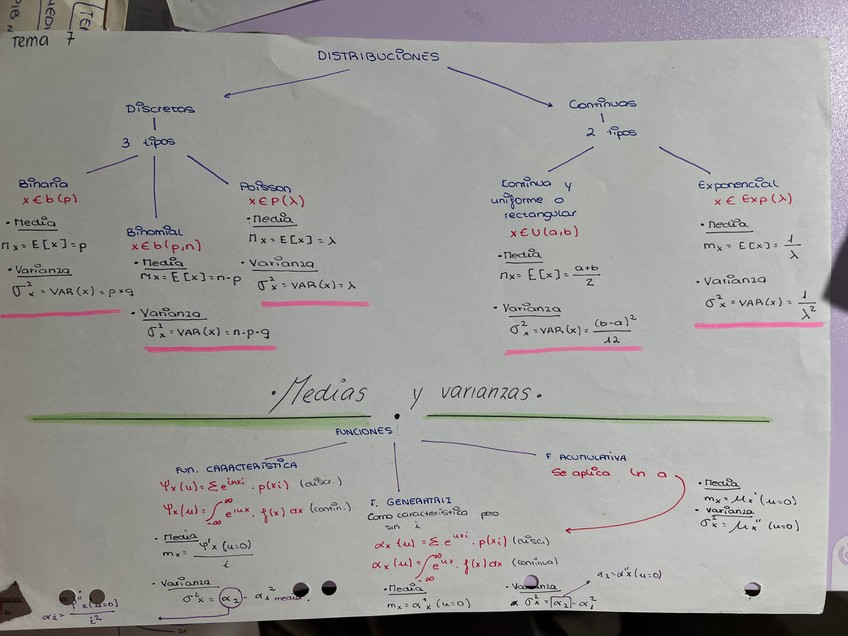 Tema 7
DISTRIBUCIONES
Discretas
3 tipos
Binaria
x ∈ b(p)
• Media
mx = E[x] = p
• Varianza
σ²x = VAR(x) = p×q
Binomial
x ∈ b(p,n)
• Media
mx = E[x] = n·p
• Varianza
σ²x = VAR(x) = n·p·q
Poisson
x ∈ P(λ)
• Media
mx = E[x] = λ
• Varianza
σ²x = VAR(x) = λ
Continuas
2 tipos
Continua y
uniforme o
rectangular
x ∈ U(a,b)
• Media
mx = E[x] = a+b/2
• Varianza
σ²x = VAR(x) = (b-a)²/12
Exponencial
x ∈ Exp(λ)
• Media
mx = E[x] = 1/λ
• Varianza
σ²x = VAR(x) = 1/λ²
• Medias y varianzas.
FUNCIONES
FUN. CARACTERÍSTICA
φx(u) = Σ e^iuxi · p(xi) (discr.)
φx(u) = ∫ -∞ ∞ e^iux · f(x) dx (contin.)
• Media
mx = φ'x(u=0)/i
• Varianza
σ²x = α2 - α1² media
α2 = φ''x(u=0)/i²
F. GENERATRIZ
Como característica pero
sin i
αx(u) = Σ e^uxi · p(xi) (disc)
αx(u) = ∫ -∞ ∞ e^ux · f(x) dx (continua)
• Media
mx = α'x(u=0)
• Varianza
σ²x = α2 - α1²
α2 = α''x(u=0)
F. ACUMULATIVA
Se aplica ln a
• Media
mx = μx'(u=0)
• Varianza
σ²x = μx''(u=0)